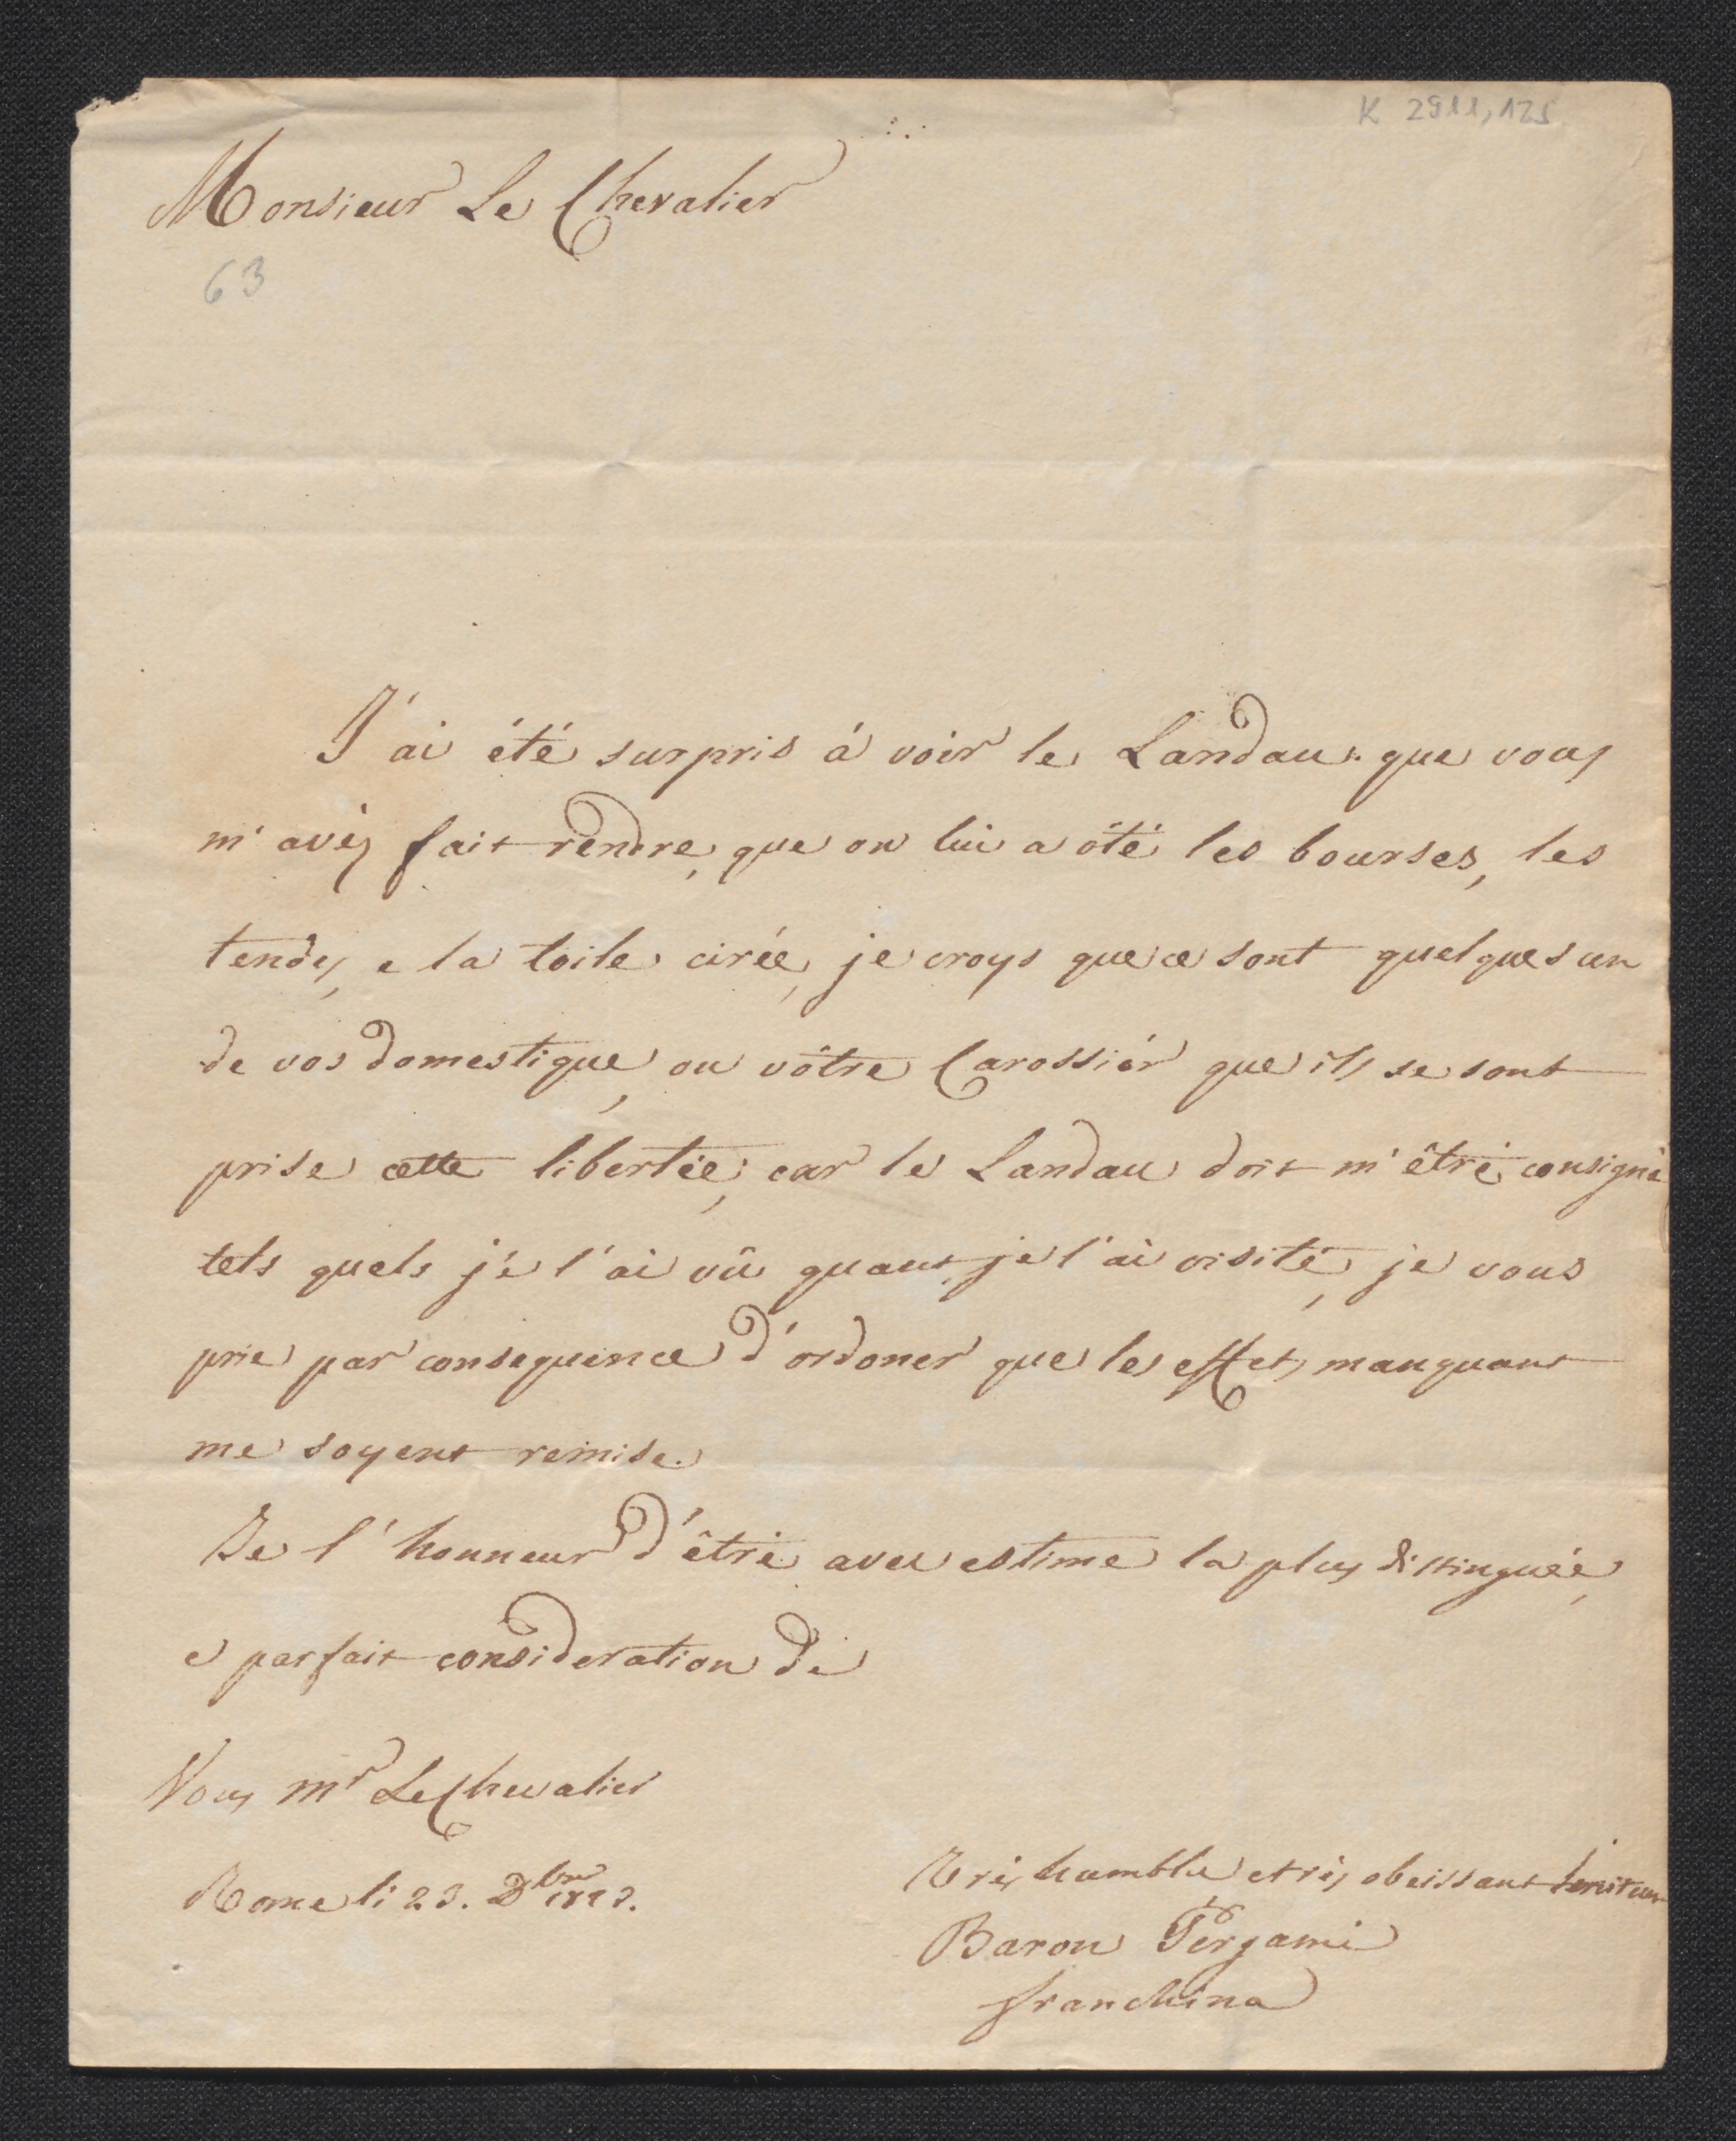 K 2911,125
Monsieur Le Chevalier
63
J'ai été surpris à voir le Landau que vous
m'avéz fait rendre, que on lui a ôté les bourses, les
tendes, e la toile cirée, je croys que ce sont quelques un
de vos domestique, ou vôtre Carossiér que ils se sont
prise cette libertée, car le Landau doit m'êtré consigné
tels quels jé l'ai vû quant je l'ai visité, je vous
prie par consequence d'ordoner que les effets manquant
me soyent remise.
Je l'honneur d'êtré avec estime la plus distinguée,
e parfait consideration de
Vous Mr Le Chevalier
Rome li 23. Dbre
Très humble et très obeissant serviteur
Baron Pergami
franchina